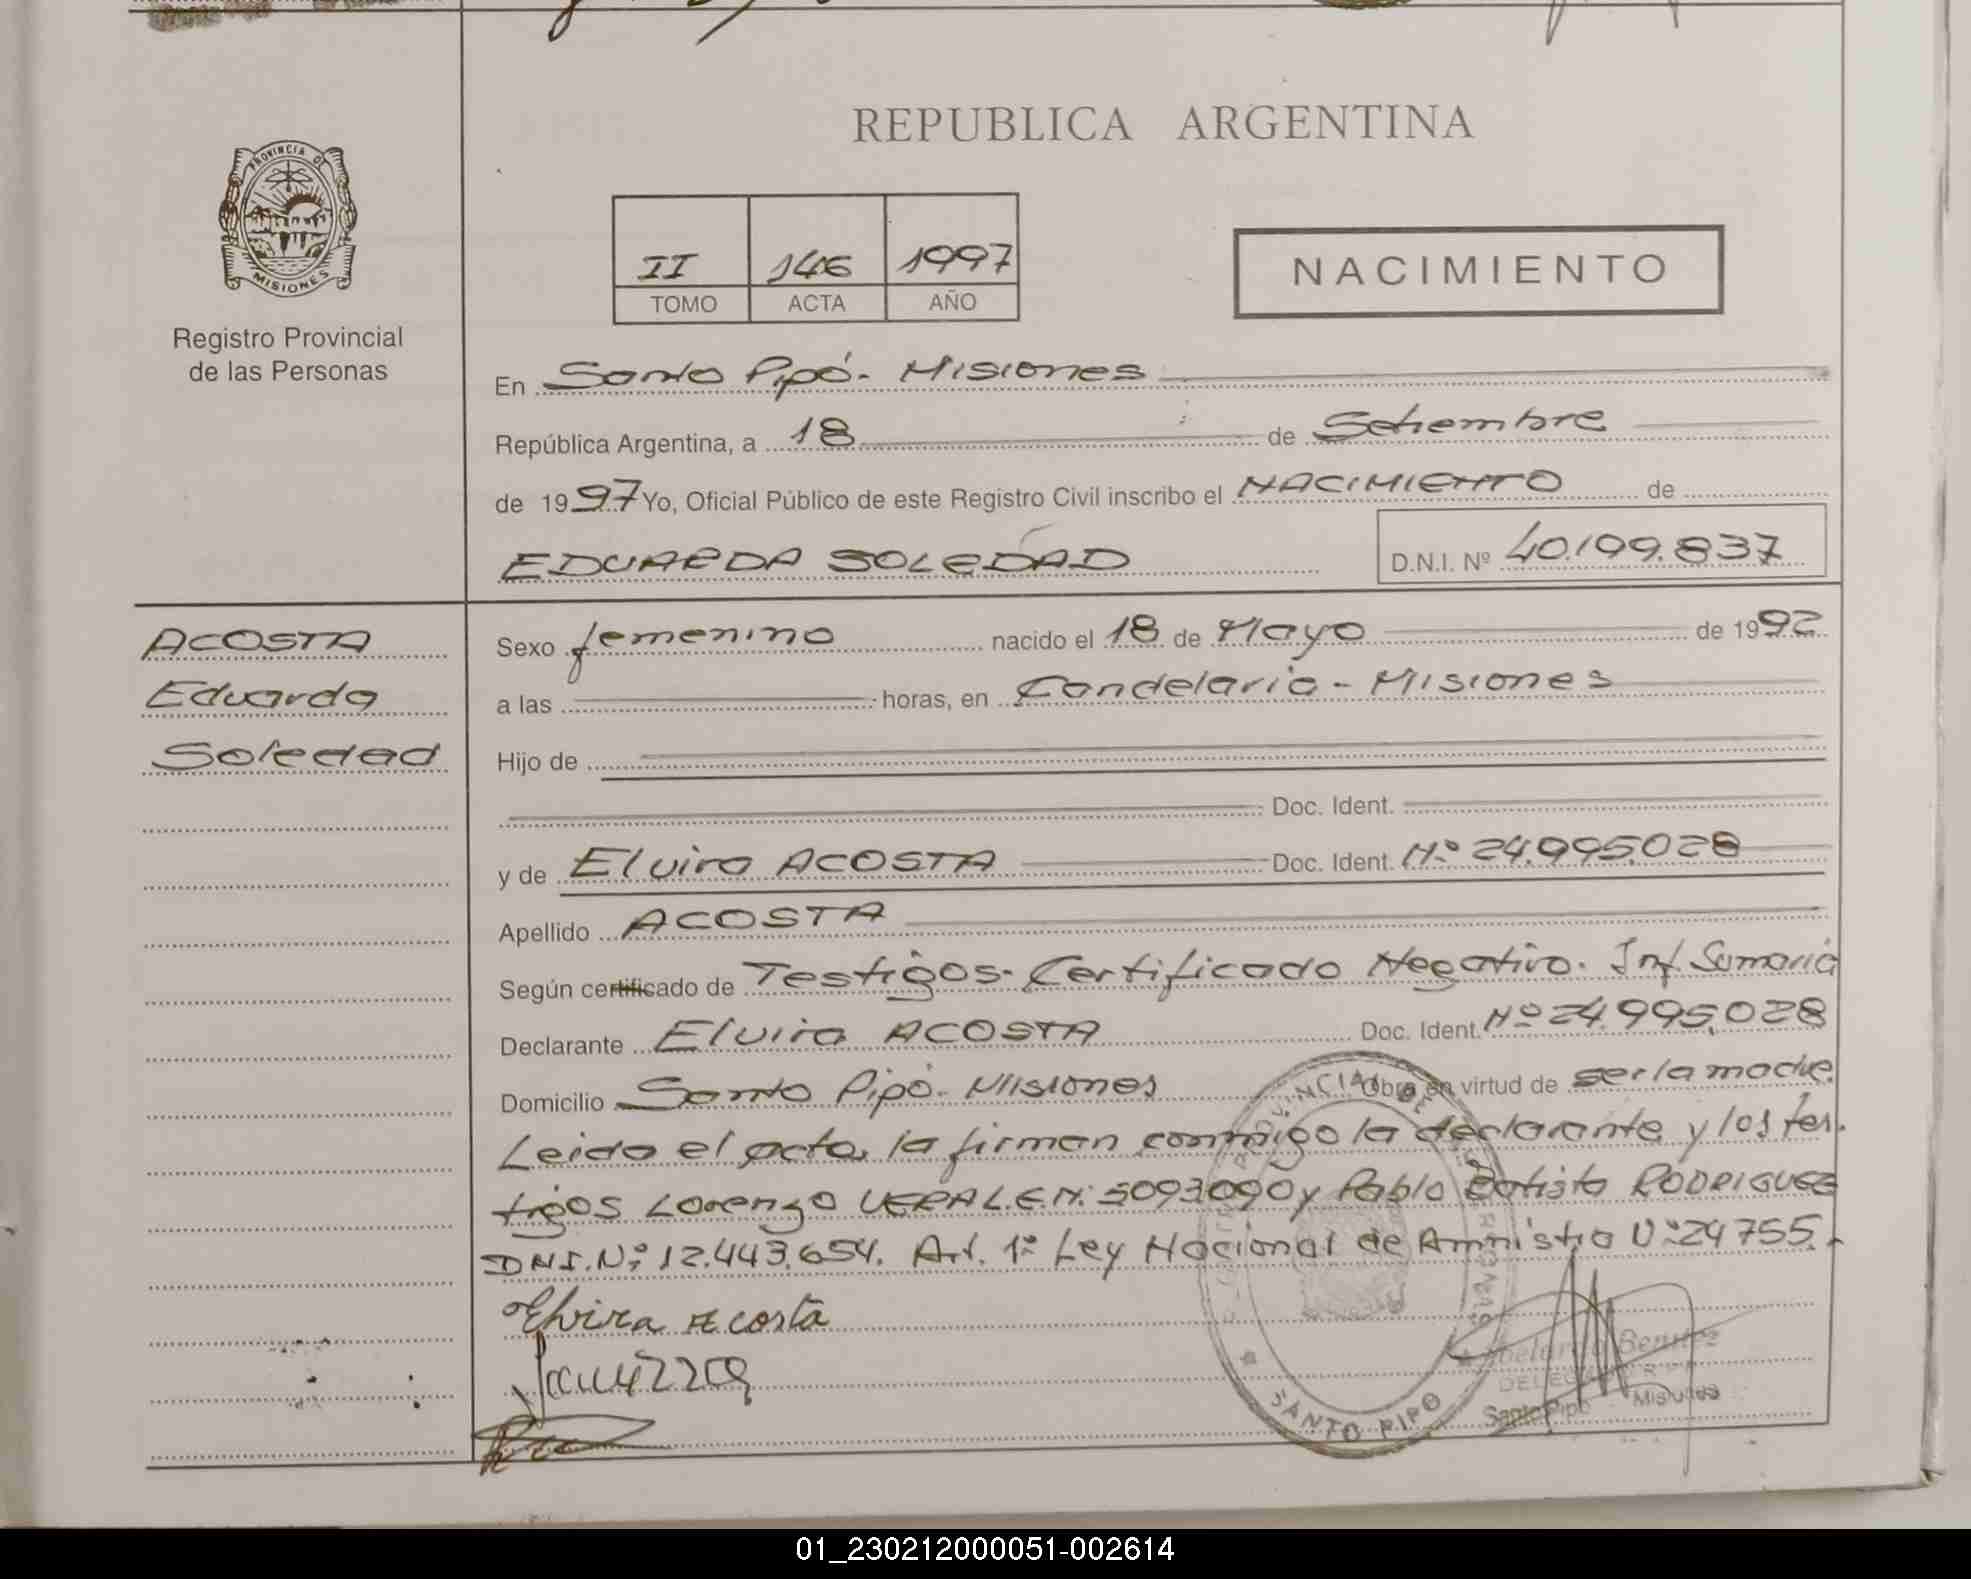 REPUBLICA ARGENTINA
PROVINCIA DE
MISIONES
Registro Provincial
de las Personas
II 146 1997
TOMO ACTA AÑO
NACIMIENTO
En Santo Pipó - Misiones
República Argentina, a 18 de Setiembre
de 1997 Yo, Oficial Público de este Registro Civil inscribo el NACIMIENTO de
EDUARDA SOLEDAD D.N.I. Nº 40.199.837
ACOSTA
Eduarda
Soledad
Sexo femenino nacido el 18 de Mayo de 1992
a las horas, en Candelaria - Misiones
Hijo de
Doc. Ident.
y de Elvira ACOSTA Doc. Ident. Nº 24.995.028
Apellido ACOSTA
Según certificado de Testigos - Certificado Negativo. Inf. Sumaria
Declarante Elvira ACOSTA Doc. Ident. Nº 24.995.028
Domicilio Santo Pipó - Misiones Obra en virtud de ser la madre.
Leida el acta, la firman conmigo la declarante y los tes-
tigos Lorenzo VERA L.E.Nº 5093090 y Pablo Batista RODRIGUEZ
DNI. Nº 12.443.654. Art. 1º Ley Nacional de Amnistia Nº 24755.
Elvira Acosta
Abelardo Benitez
DELEGADO
Santo Pipó - Misiones
SANTO PIPO
01_230212000051-002614